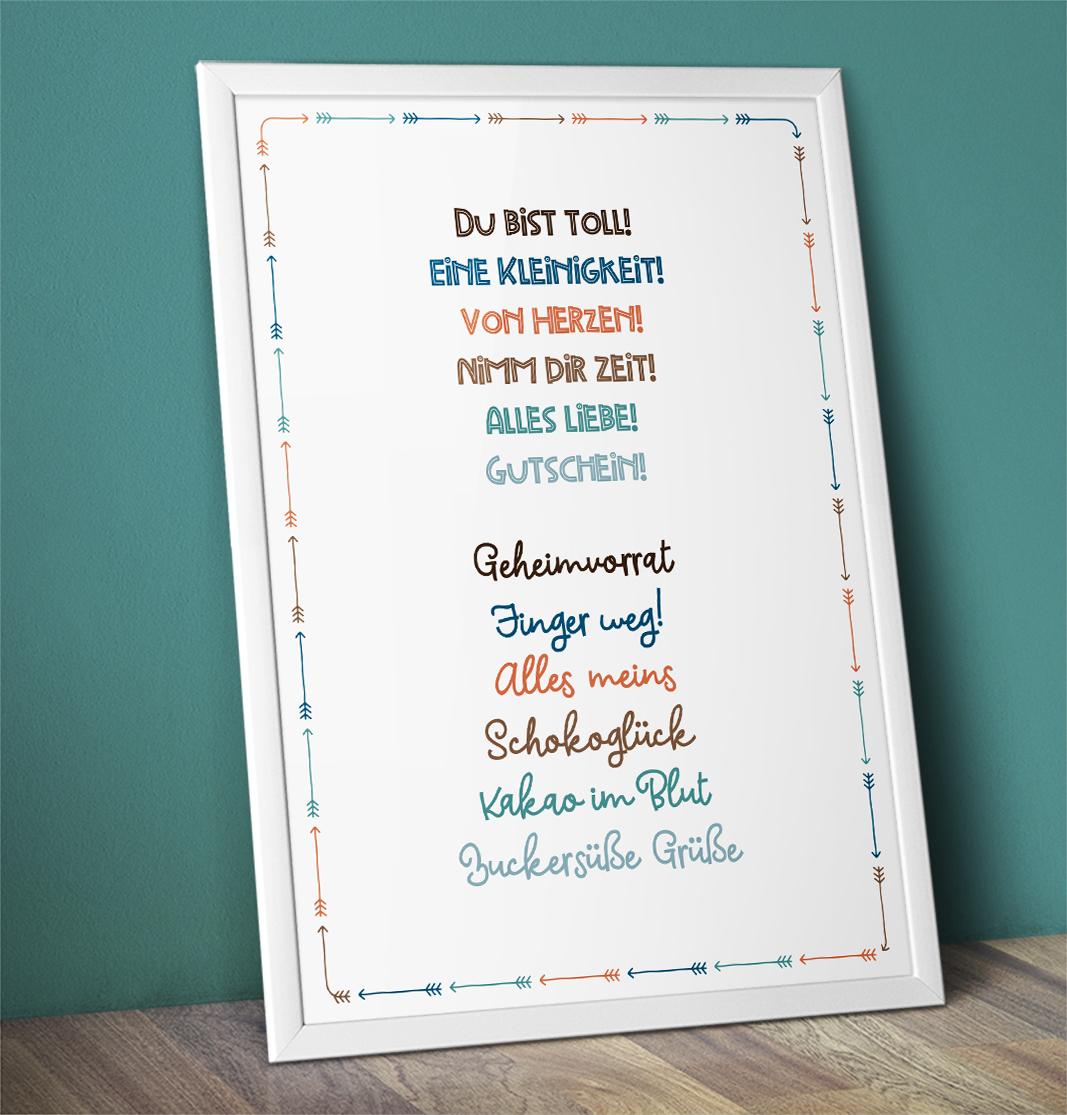 Du bist toll!
Eine Kleinigkeit!
Von Herzen!
Nimm dir Zeit!
Alles Liebe!
Gutschein!
Geheimvorrat
Finger weg!
Alles meins
Schokoglück
Kakao im Blut
Zuckersüße Grüße